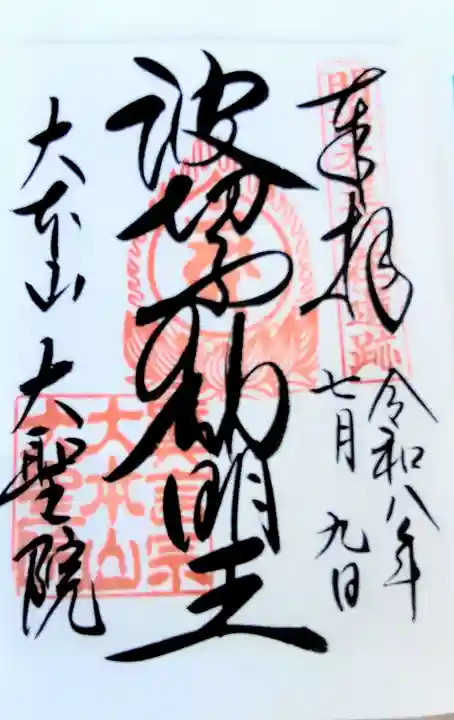 奉拝
令和八年
七月 九日
波切不動明王
大本山 大聖院
大本山